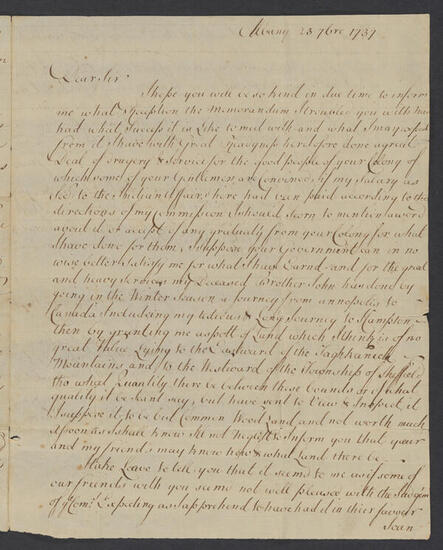 Albany 23 7bre 1737
Dear Sir
I hope you will be so kind in due time to inform
me what Reception the Memorandum I troubled you with has
had what success it is Like to meet with and what I may expect
from it I have with Great Readyness heretofore done a great
Deal of drugery & service for the good people of your Colony of
which some of your Gentlemen are Convinced, if my Salary as
Secy to the Indian Affairs here had been paid according to the
directions of my Commission I should scorn to mention a word
about it or accept of any gratuity from your Colony for what
I have done for them, I suppose your Government can in no
wise better Satisfy me for what I have Earnd and for the great
and heavy services my Deceased Brother John has done by
going in the Winter Season a Journey from annapolis to
Canada Including my tedious & Long Journey to Hampton
then by granting me a spott of Land which I think is of no
great Value Lying to the Eastward of the Taghkanick
Mountains and to the Westward of the Township of Sheffield
tho what Quantity there be between those bounds or of what
quality it be I cant say, but have sent to View & Inspect it
I suppose it to be but Common Wood Land and not worth much
as soon as I shall know I'll not neglect to Inform you that your
and my friends may know how & what Land there be
I take Leave to tell you that it seems to me as if some of
our friends with you seeme not well pleased with the
of ye Comrs Expecting as I apprehend to have had it in their favour
I can